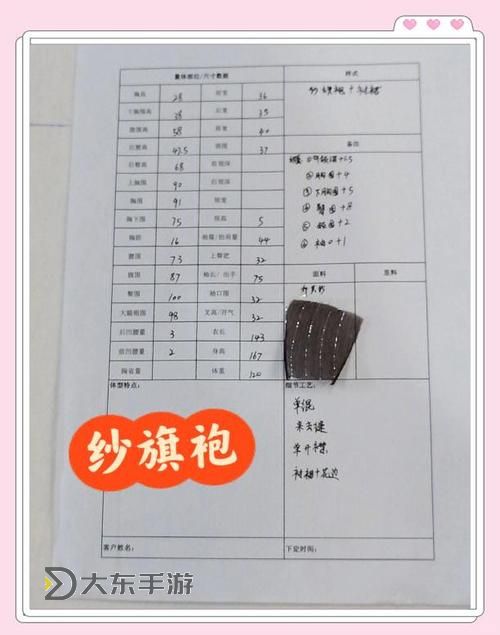 量体部位/尺寸数据
样式
胸高 28 前宽 36
纱旗袍+衬裙
下胸围高 28 后宽 35
腹围高 58 肩宽 40
备注
后腰高 43.5 领围 37
后臀高 68 前领深
上胸围 90 后领深
②胸围+4
胸围 91 领宽
③下胸围+5
胸下围 75 领高 5
④臀围+8
胸距 16 44
⑤领围+2
腰围 73 上臂肥 32
⑥袖口+1
腹围 87 袖长/出手 75
面料
里料
臀围 100 袖口围 32
大腿根围 98 叉高/开气 32
后凹腰量 3 衣长 143
前凹腰量 2 身高 167
胸省量 体重 120
体型特点:
细节工艺:
单滚
单开襟
衬裙+花边
纱旗袍
客户姓名:
下定时间:
大东手游